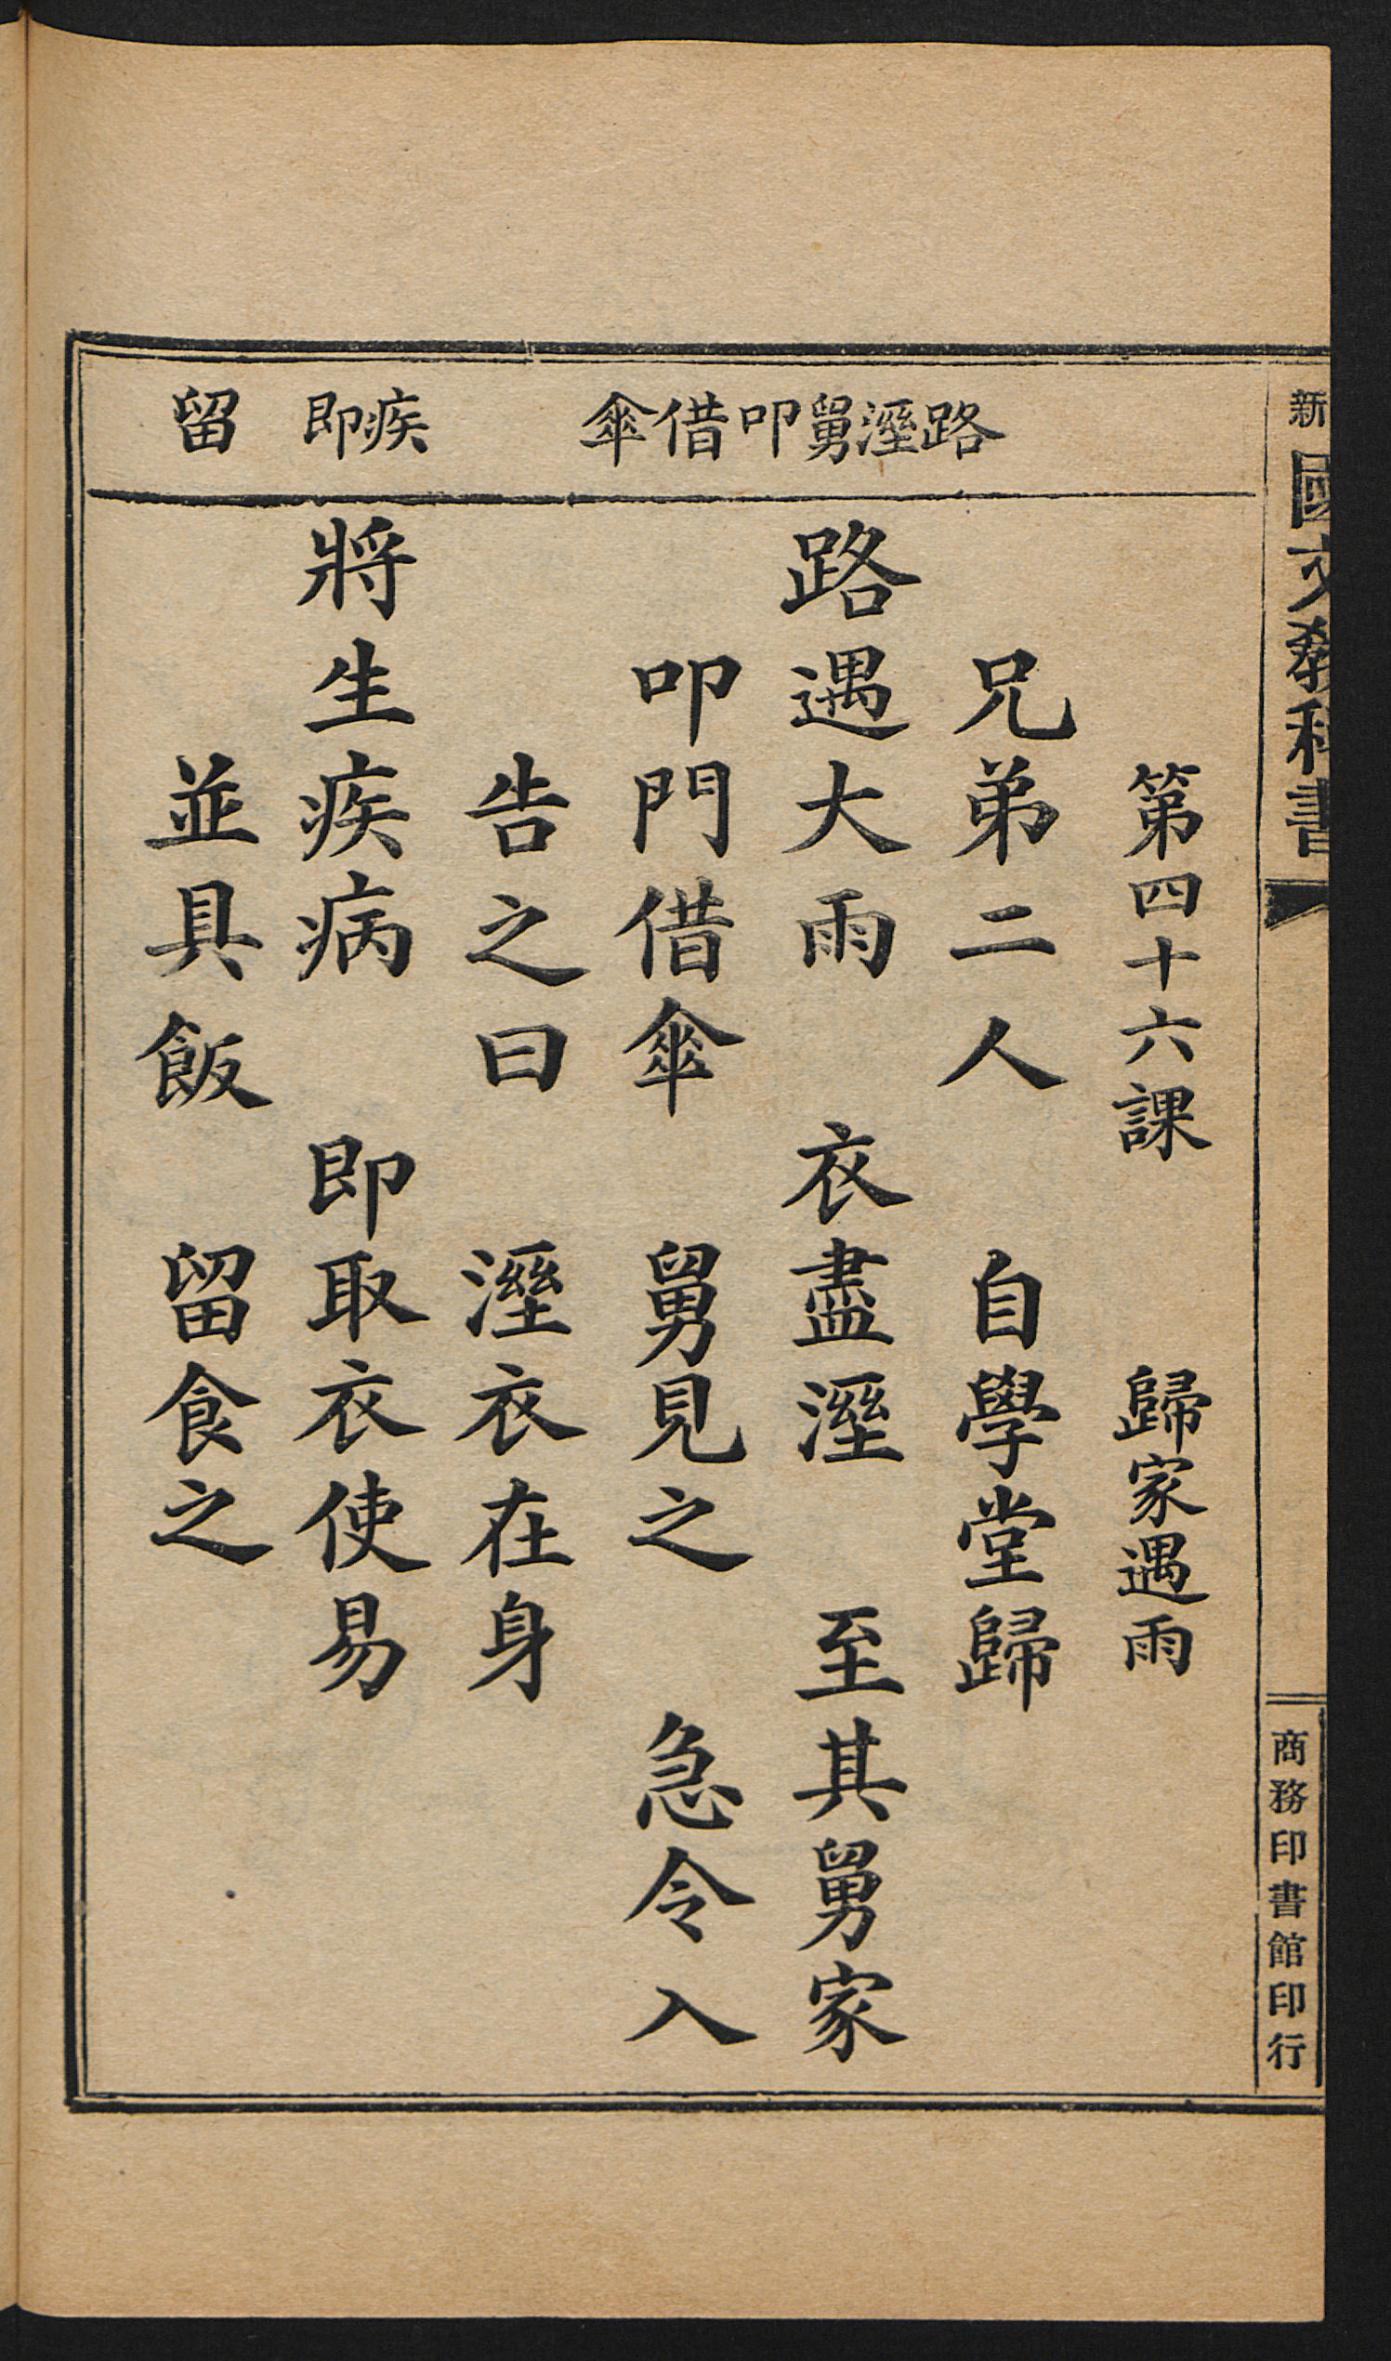 新國文教科書
商務印書館印行
路溼舅叩借傘 疾即 留
第四十六課 歸家遇雨
兄弟二人 自學堂歸
路遇大雨 衣盡溼 至其舅家
叩門借傘 舅見之 急令入
告之曰 溼衣在身
將生疾病 即取衣使易
並具飯 留食之